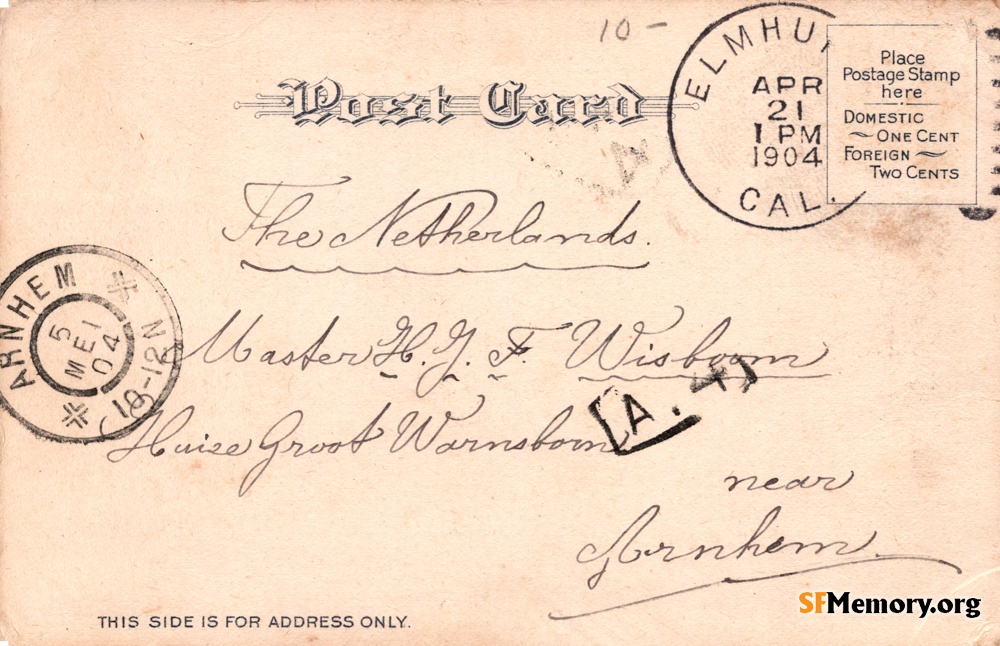 10-
Post Card
ELMHU
APR
21
1 PM
1904
CAL.
Place
Postage Stamp
here
DOMESTIC
ONE CENT
FOREIGN
TWO CENTS
The Netherlands.
ARNHEM
5
MEI
04
10-12N
Master H. J. F. Wisboom
Huize Groot Warnsborn
A. 4
near
Arnhem.
THIS SIDE IS FOR ADDRESS ONLY.
SFMemory.org